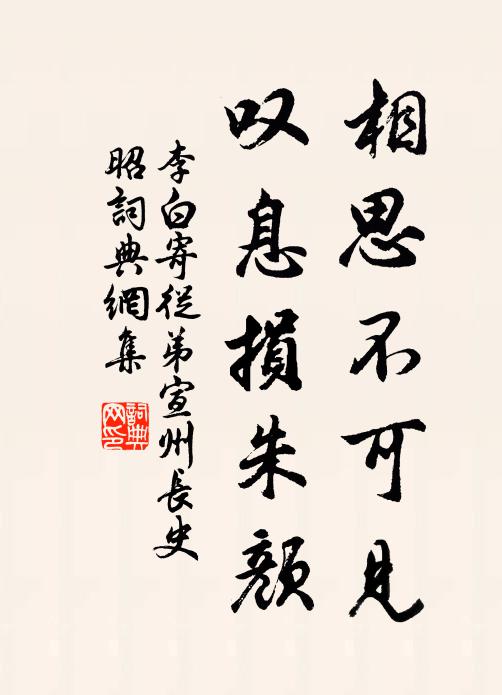 相思不可见
叹息損朱顔
李白寄從弟宣州長史
昭詞典網集
詞典
网印